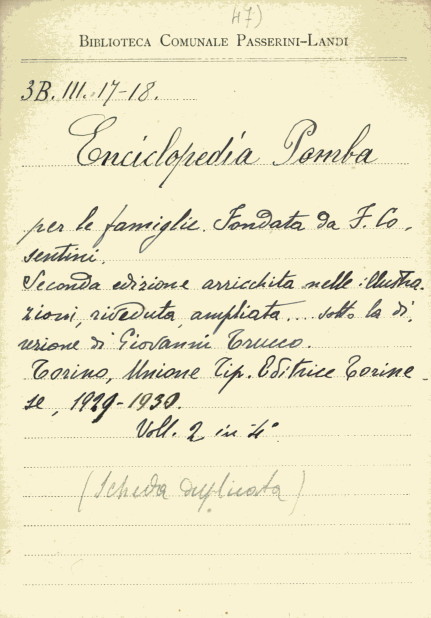 47)
BIBLIOTECA COMUNALE PASSERINI-LANDI
3B. III. 17-18.
Enciclopedia Pomba
per le famiglie. Fondata da F. Co-
sentini.
Seconda edizione arricchita nelle illustra-
zioni, riveduta, ampliata.... sotto la di-
rezione di Giovanni Trucco.
Torino, Unione Tip. Editrice Torine-
se, 1929-1930.
Voll. 2 in 4°
(Scheda duplicata)